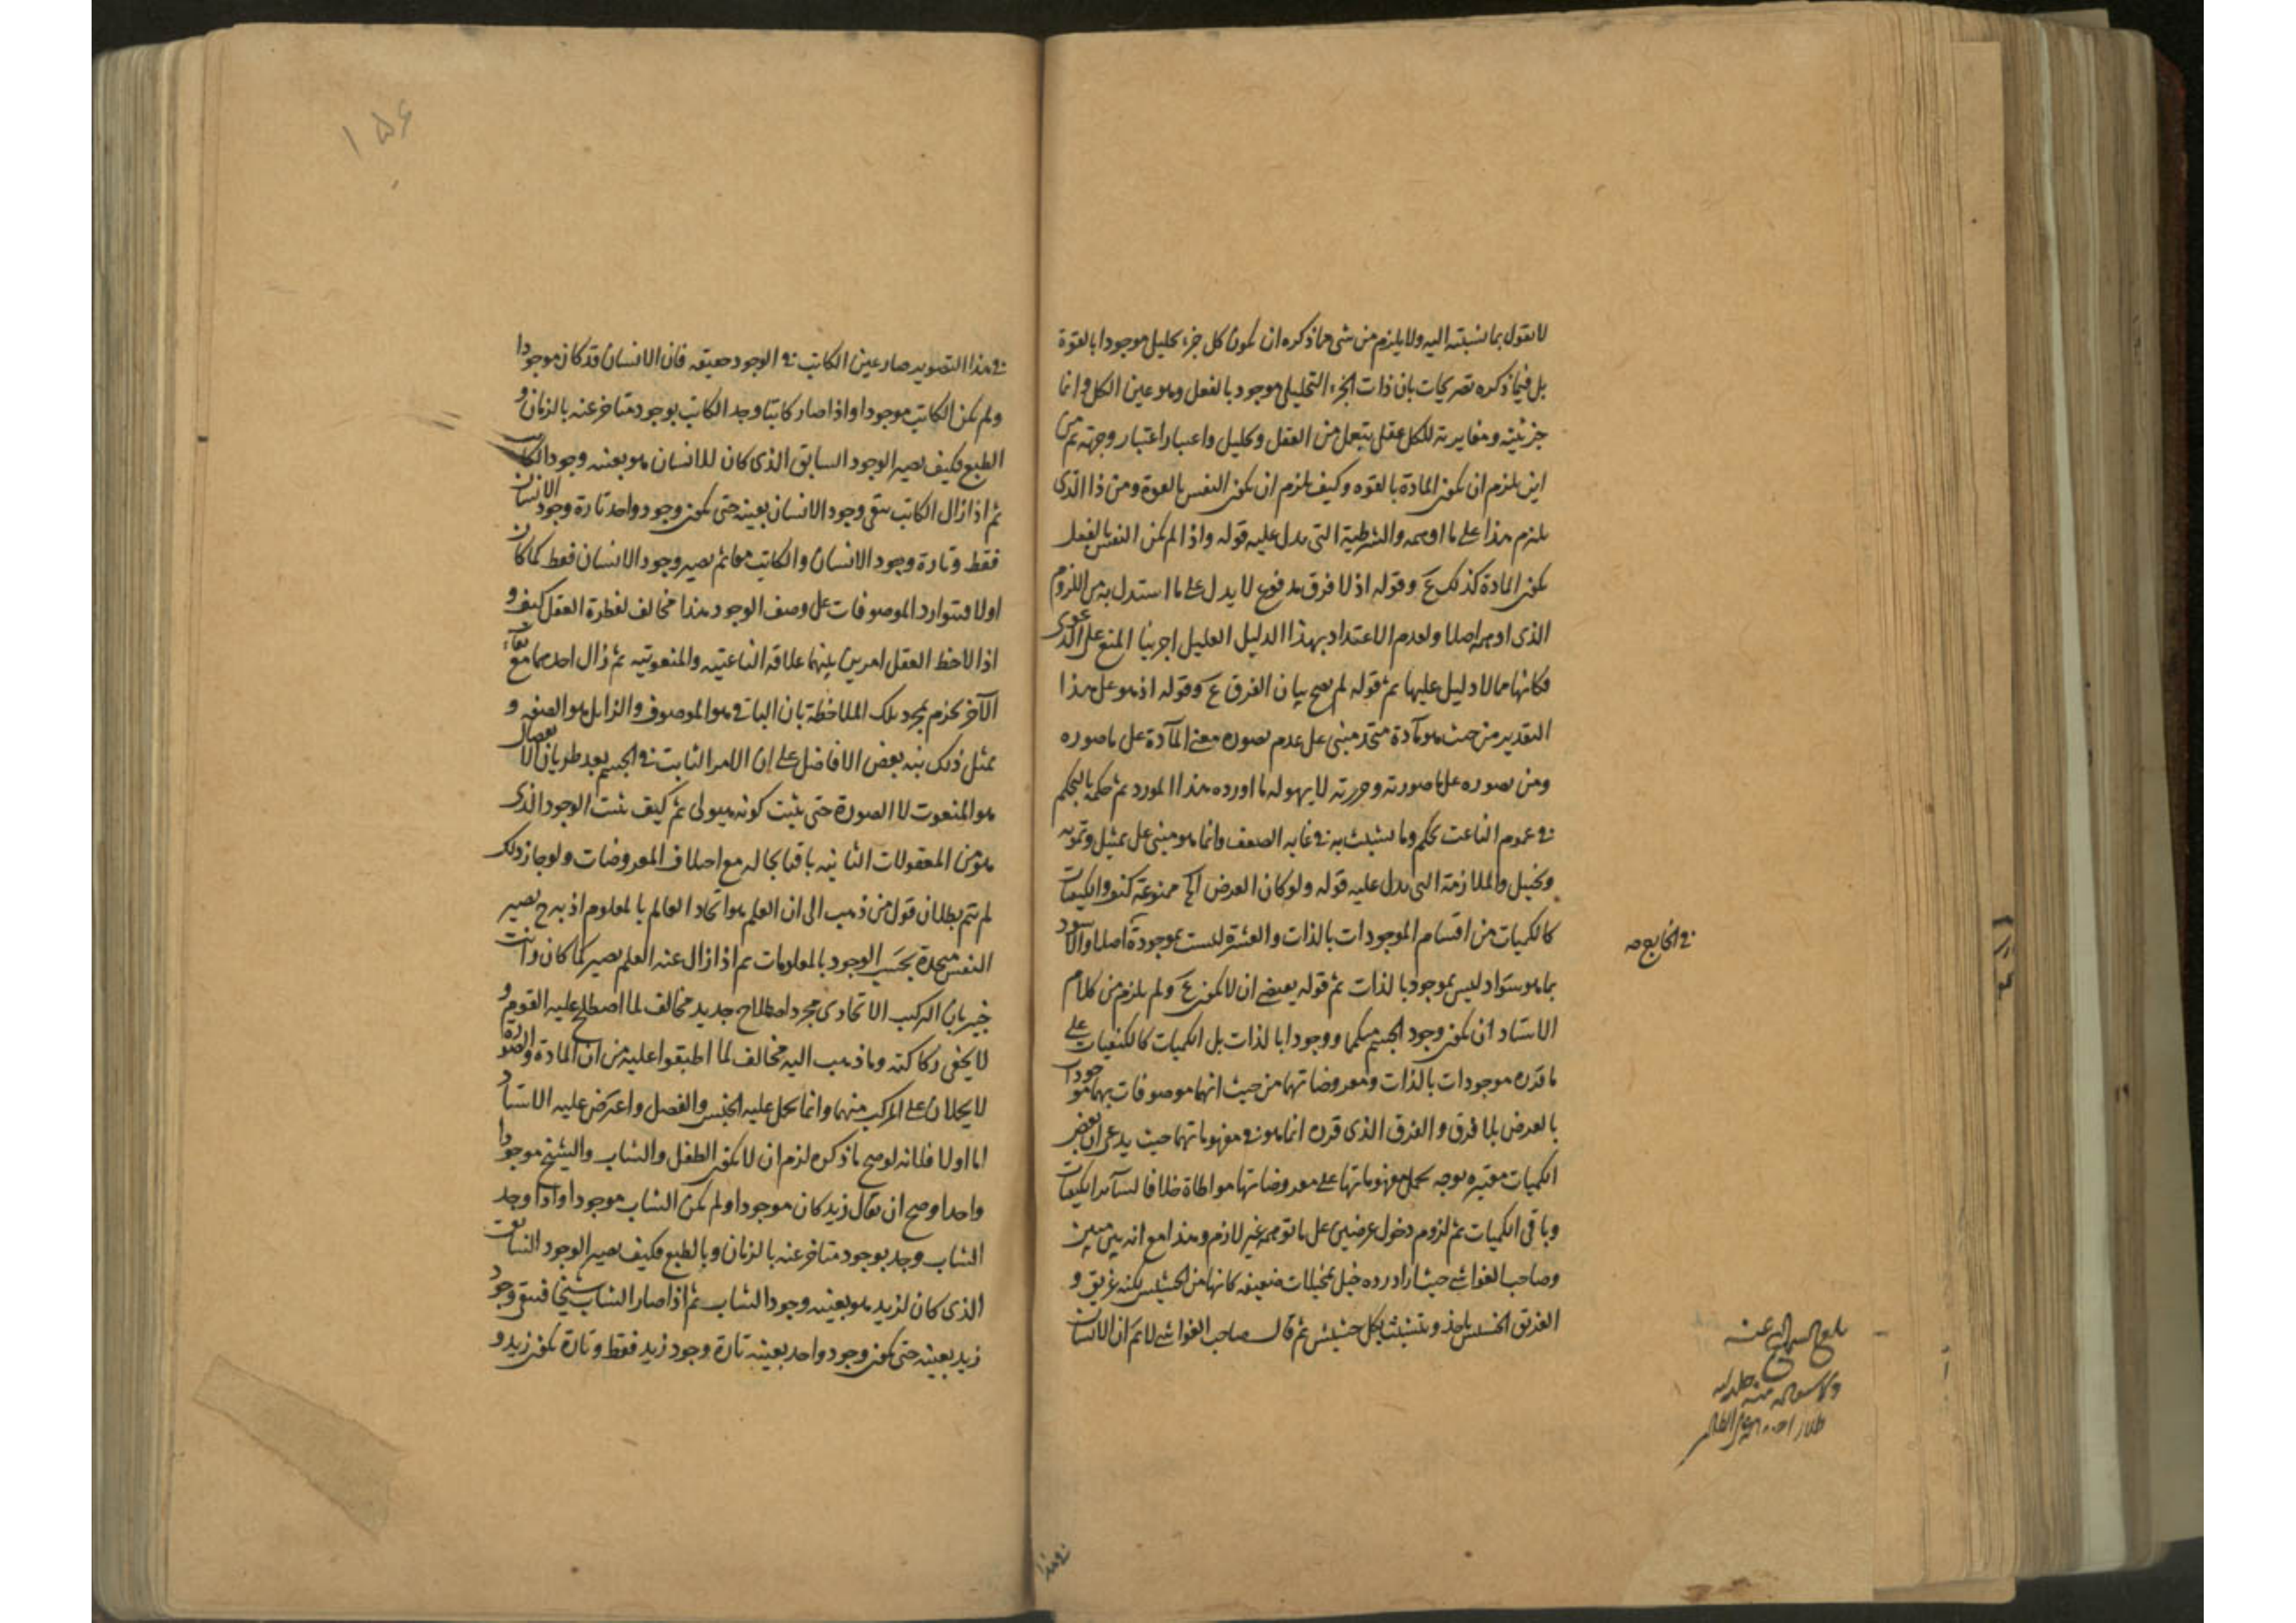 لا نقول بما نسبته اليه ولا يلزم من شئ مما ذكره ان يكون كل جزء تحليلى موجودا بالقوة
بل فيما ذكره تصريحات بان ذات الجزء التحليلى موجود بالفعل وهو عين الكل وانما
جزئيته ومغايرته للكل عقلى بتعمل من العقل وتحليل واعتبار وجهته ثم من
اين يلزم ان يكون المادة بالقوه وكيف يلزم ان يكون النفس بالقوة ومن ذا الذى
يلزم هذا على ما اوهمه والشرطية التى يدل عليه قوله واذا لم يكن النفس بالفعل
يكون المادة كذلك ع وقوله اذ لا فرق مدفوع لا يدل على ما استدل به من اللزوم
الذى ادعاه اصلا ولعدم الاعتداد بهذا الدليل العليل اجرينا المنع على الدعوى
فكانها مما لا دليل عليها ثم قوله لم يصح بيان الفرق ع وقوله اذ هو على هذا
التقدير من حيث هو مادة متحد مبنى على عدم تصوره معنى المادة على ما صوره
ومن تصوره على ما صورته وحررته لا يهوله ما اورده هذا المورد ثم حكمه بالتحكم
فى عموم الناعت تحكم وما تشبث به فى غايه الضعف وانما هو مبنى على تمثيل وتمويه
وتخييل والملازمة التى يدل عليه قوله ولو كان العرض الخ ممنوعة كيف والكيفيات
كالكميات من اقسام الموجودات بالذات والعشرة ليست بموجودة اصلا والاسود
فى الخارج صح
بما هو سواد ليس بموجود بالذات ثم قوله يقتضى ان لا يكون ع ولم يلزم من كلام
الاستاد ان يكون وجود الجسم متكمما ووجودا بالذات بل الكميات كالكيفيات على
ما قرره موجودات بالذات ومعروضاتهما من حيث انهما موصوفات بهما موجودات
بالعرض بلا فرق والفرق الذى قرره انما هو فى مفهوماتهما حيث يدعى ان بعض
الكميات معتبره بوجه يحمل مفهوماتها على معروضاتها مواطاة خلافا لسائر الكيفيات
وباقى الكميات ثم لزوم دخول عرضين على ما توهمه غير لازم وهذا مع انه بين مبين
وصاحب الغواشى حيث اراد رده خيل بمخيلات ضعيفه كانها من الحشيش لكنه غريق و
الغريق الخسيس ياخذ ويتشبث بكل حشيش ثم قال صاحب الغواشى لا ثم ان الانسان
فى هذا
١٥٦
فى هذا التصوير صار عين الكاتب فى الوجود حقيقه فان الانسان قد كان موجودا
ولم يكن الكاتب موجودا واذا صار كاتبا وجد الكاتب بوجود متاخر عنه بالزمان و
الطبع فكيف يصير الوجود السابق الذى كان للانسان هو بعينه وجود الكاتب
ثم اذا زال الكاتب يبقى وجود الانسان بعينه حتى يكون وجود واحد تارة وجود الانسان
فقط وتارة وجود الانسان والكاتب معا ثم يصير وجود الانسان فقط كما كان
اولا فتوارد الموصوفات على وصف الوجود هذا مخالف لفطرة العقل كيف و
اذا لاحظ العقل امرين بينهما علاقة الناعتيه والمنعوتيه ثم زال احدهما مع بقاء
الآخر يحزم بمجرد تلك الملاحظة بان الباقى هو الموصوف والزايل هو الصفه و
بمثل ذلك بنه بعض الافاضل على ان الامر الثابت فى الجسم بعد طريان الانفصال
هو المنعوت لا الصورة حتى يثبت كونه هيولى ثم كيف يثبت الوجود الذى
هو من المعقولات الثانيه باقيا بحاله مع اختلاف المعروضات ولو جاز ذلك
لم يتم بطلان قول من ذهب الى ان العلم هو اتحاد العالم بالمعلوم اذ يرجع يصير
النفس متحدة بحسب الوجود بالمعلومات ثم اذا زال عنه العلم يصير كما كان وانت
خبير بان التركيب الاتحادى مجرد اصطلاح جديد مخالف لما اصطلح عليه القوم و
لا يخفى ركاكته وما ذهب اليه مخالف لما اطبقوا عليه من ان المادة والصورة
لا يحملان على المركب منهما وانما يحمل عليه الجنس والفصل واعترض عليه الاستاد
اما اولا فلانه لو صح ما ذكره لزم ان لا يكون الطفل والشاب والشيخ موجودا
واحدا وصح ان يقال زيد كان موجودا ولم يكن الشاب موجودا واذا وجد
الشاب وجد بوجود متاخر عنه بالزمان وبالطبع فكيف يصير الوجود السابق
الذى كان لزيد هو بعينه وجود الشاب ثم اذا صار الشاب شيخا فيبقى وجود
زيد بعينه حتى يكون وجود واحد بعينه تارة وجود زيد فقط وتارة يكون زيد و